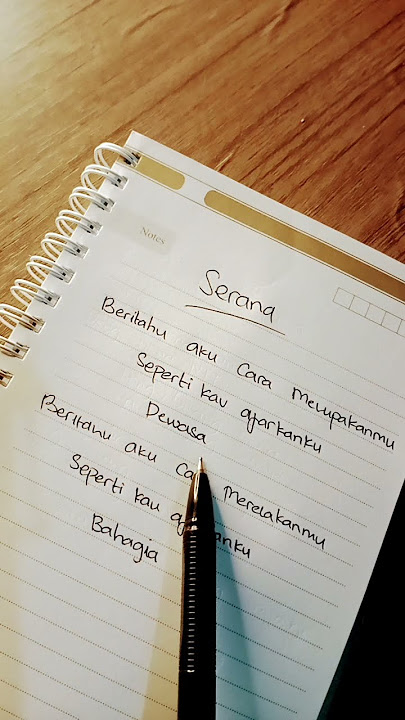 Notes
Serana
Beritahu aku Cara Melupakanmu
Seperti kau ajarkanku
Dewasa
Beritahu aku Merelakanmu
Seperti kau
Bahagia